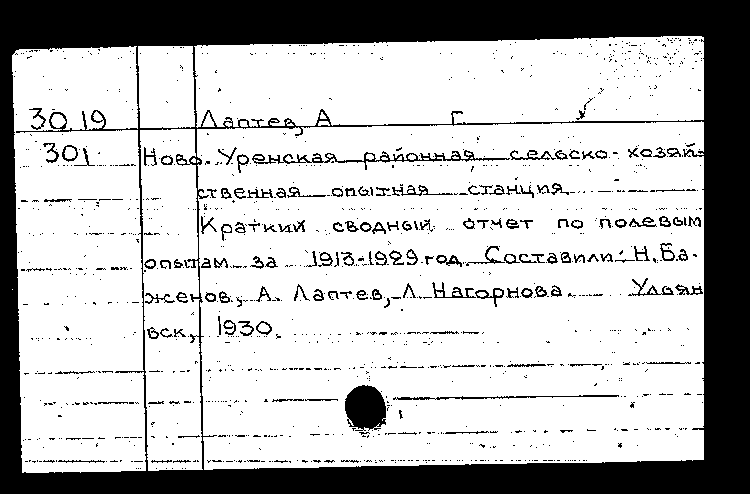 30.19 Лаптев, А Г.
301 Ново-Уренская районная сельско-хозяй-
ственная опытная станция.
Краткий сводный отчет по полевым
опытам за 1913-1929 год. Составили: Н. Ба-
женов, А. Лаптев, Л. Нагорнова. Ульян
вск, 1930.